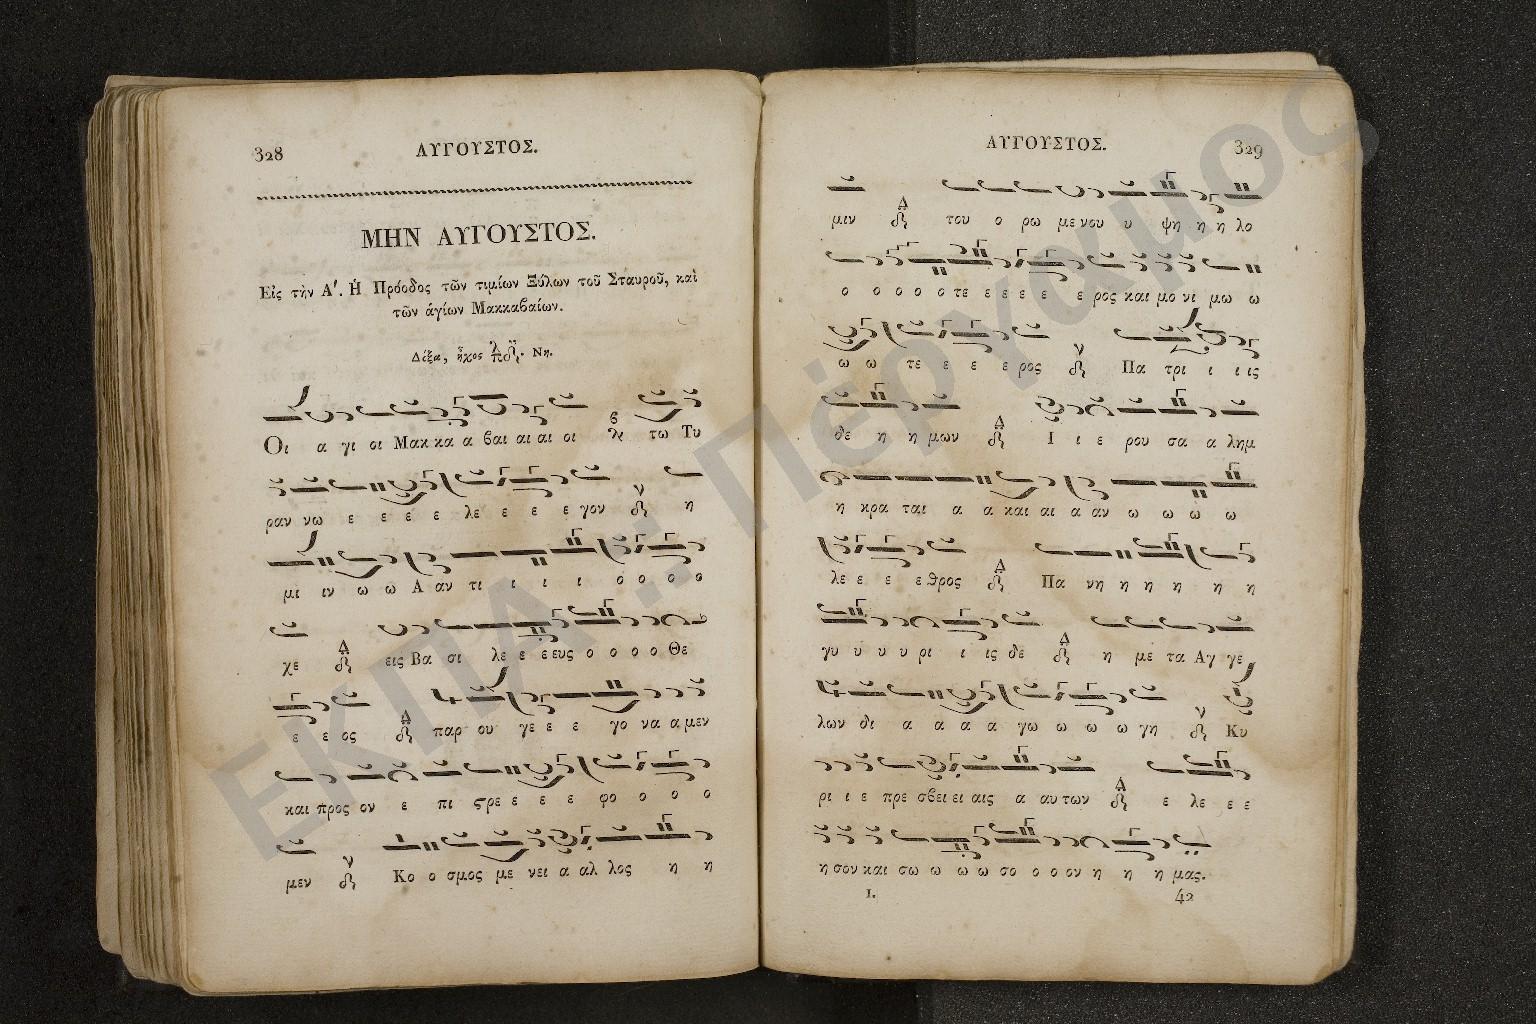 328
ΑΥΓΟΥΣΤΟΣ.
ΜΗΝ ΑΥΓΟΥΣΤΟΣ.
Εἰς τὴν Α'. Ἡ Πρόοδος τῶν τιμίων Ξύλων τοῦ Σταυροῦ, καὶ
τῶν ἁγίων Μακκαβαίων.
Δόξα, ἦχος πλ. Νη.
Οι α γι οι Μακ κα α βαι αι αι οι τω Τυ
ραν νω ε ε ε ε λε ε ε ε γον η
μι ιν ω ω Α αν τι ι ι ι ο ο ο ο
χε εις Βα σι λε ε ε ευς ο ο ο ο Θε
ε ε ος παρ ου γε ε ε γο να α μεν
και προς ον ε πι ςρε ε ε ε φο ο ο ο
μεν Κο ο σμος με νει α αλ λος η η
ΑΥΓΟΥΣΤΟΣ.
329
μιν του ο ρω με νου υ ψη η η λο
ο ο ο ο ο τε ε ε ε ε ρος και μο νι μω ω
ω ω τε ε ε ε ρος Πα τρι ι ι ις
δε η η μων Ι ι ε ρου σα α λημ
η κρα ται α α και αι α αν ω ω ω ω
λε ε ε ε θρος Πα νη η η η η η
γυ υ υ υ ρι ι ις δε η με τα Αγ γε
λων δι α α α α γω ω ω ω γη Κυ
ρι ι ε πρε σβει ει αις α αυ των ε λε ε ε
η σον και σω ω ω ω σο ο ο ον η η η μας.
I.
42
ΕΚΠΑ :: Πέργαμος